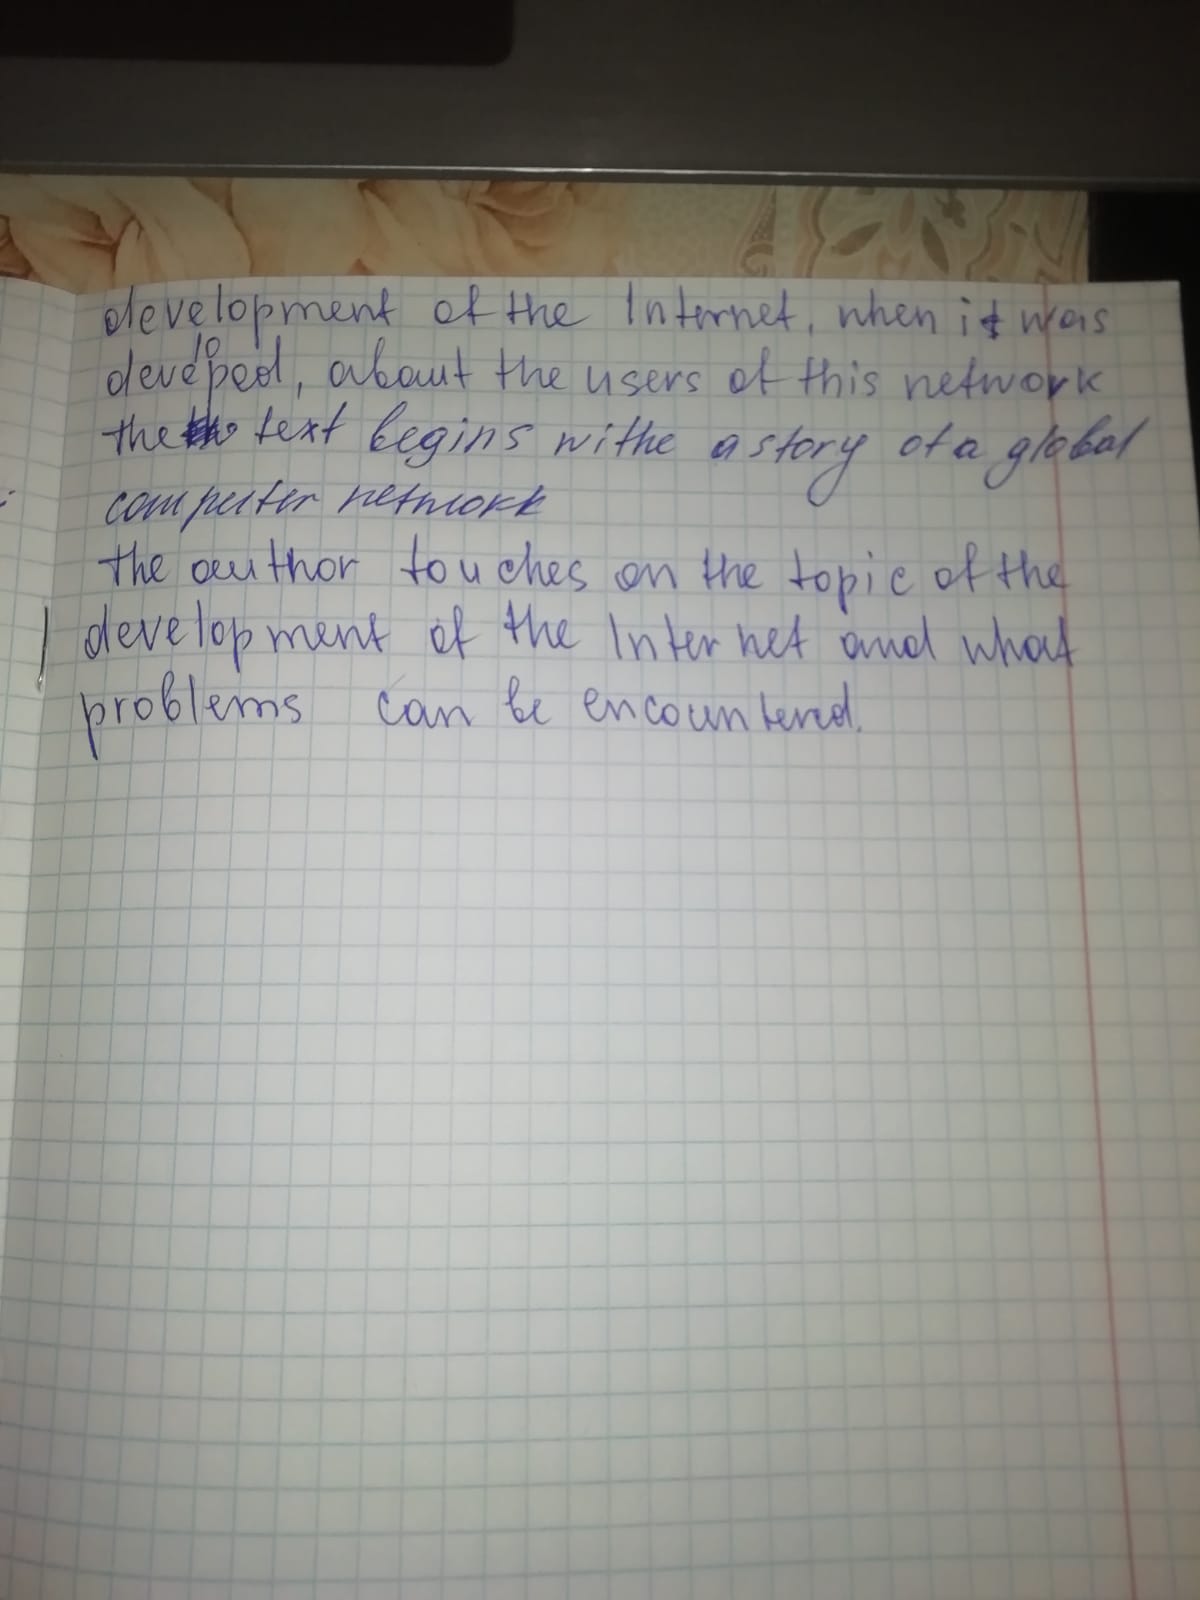 development of the Internet, when it was
developed, about the users of this network
the text begins withe a story of a global
computer network
the author touches on the topic of the
development of the Internet and what
problems can be encountered.